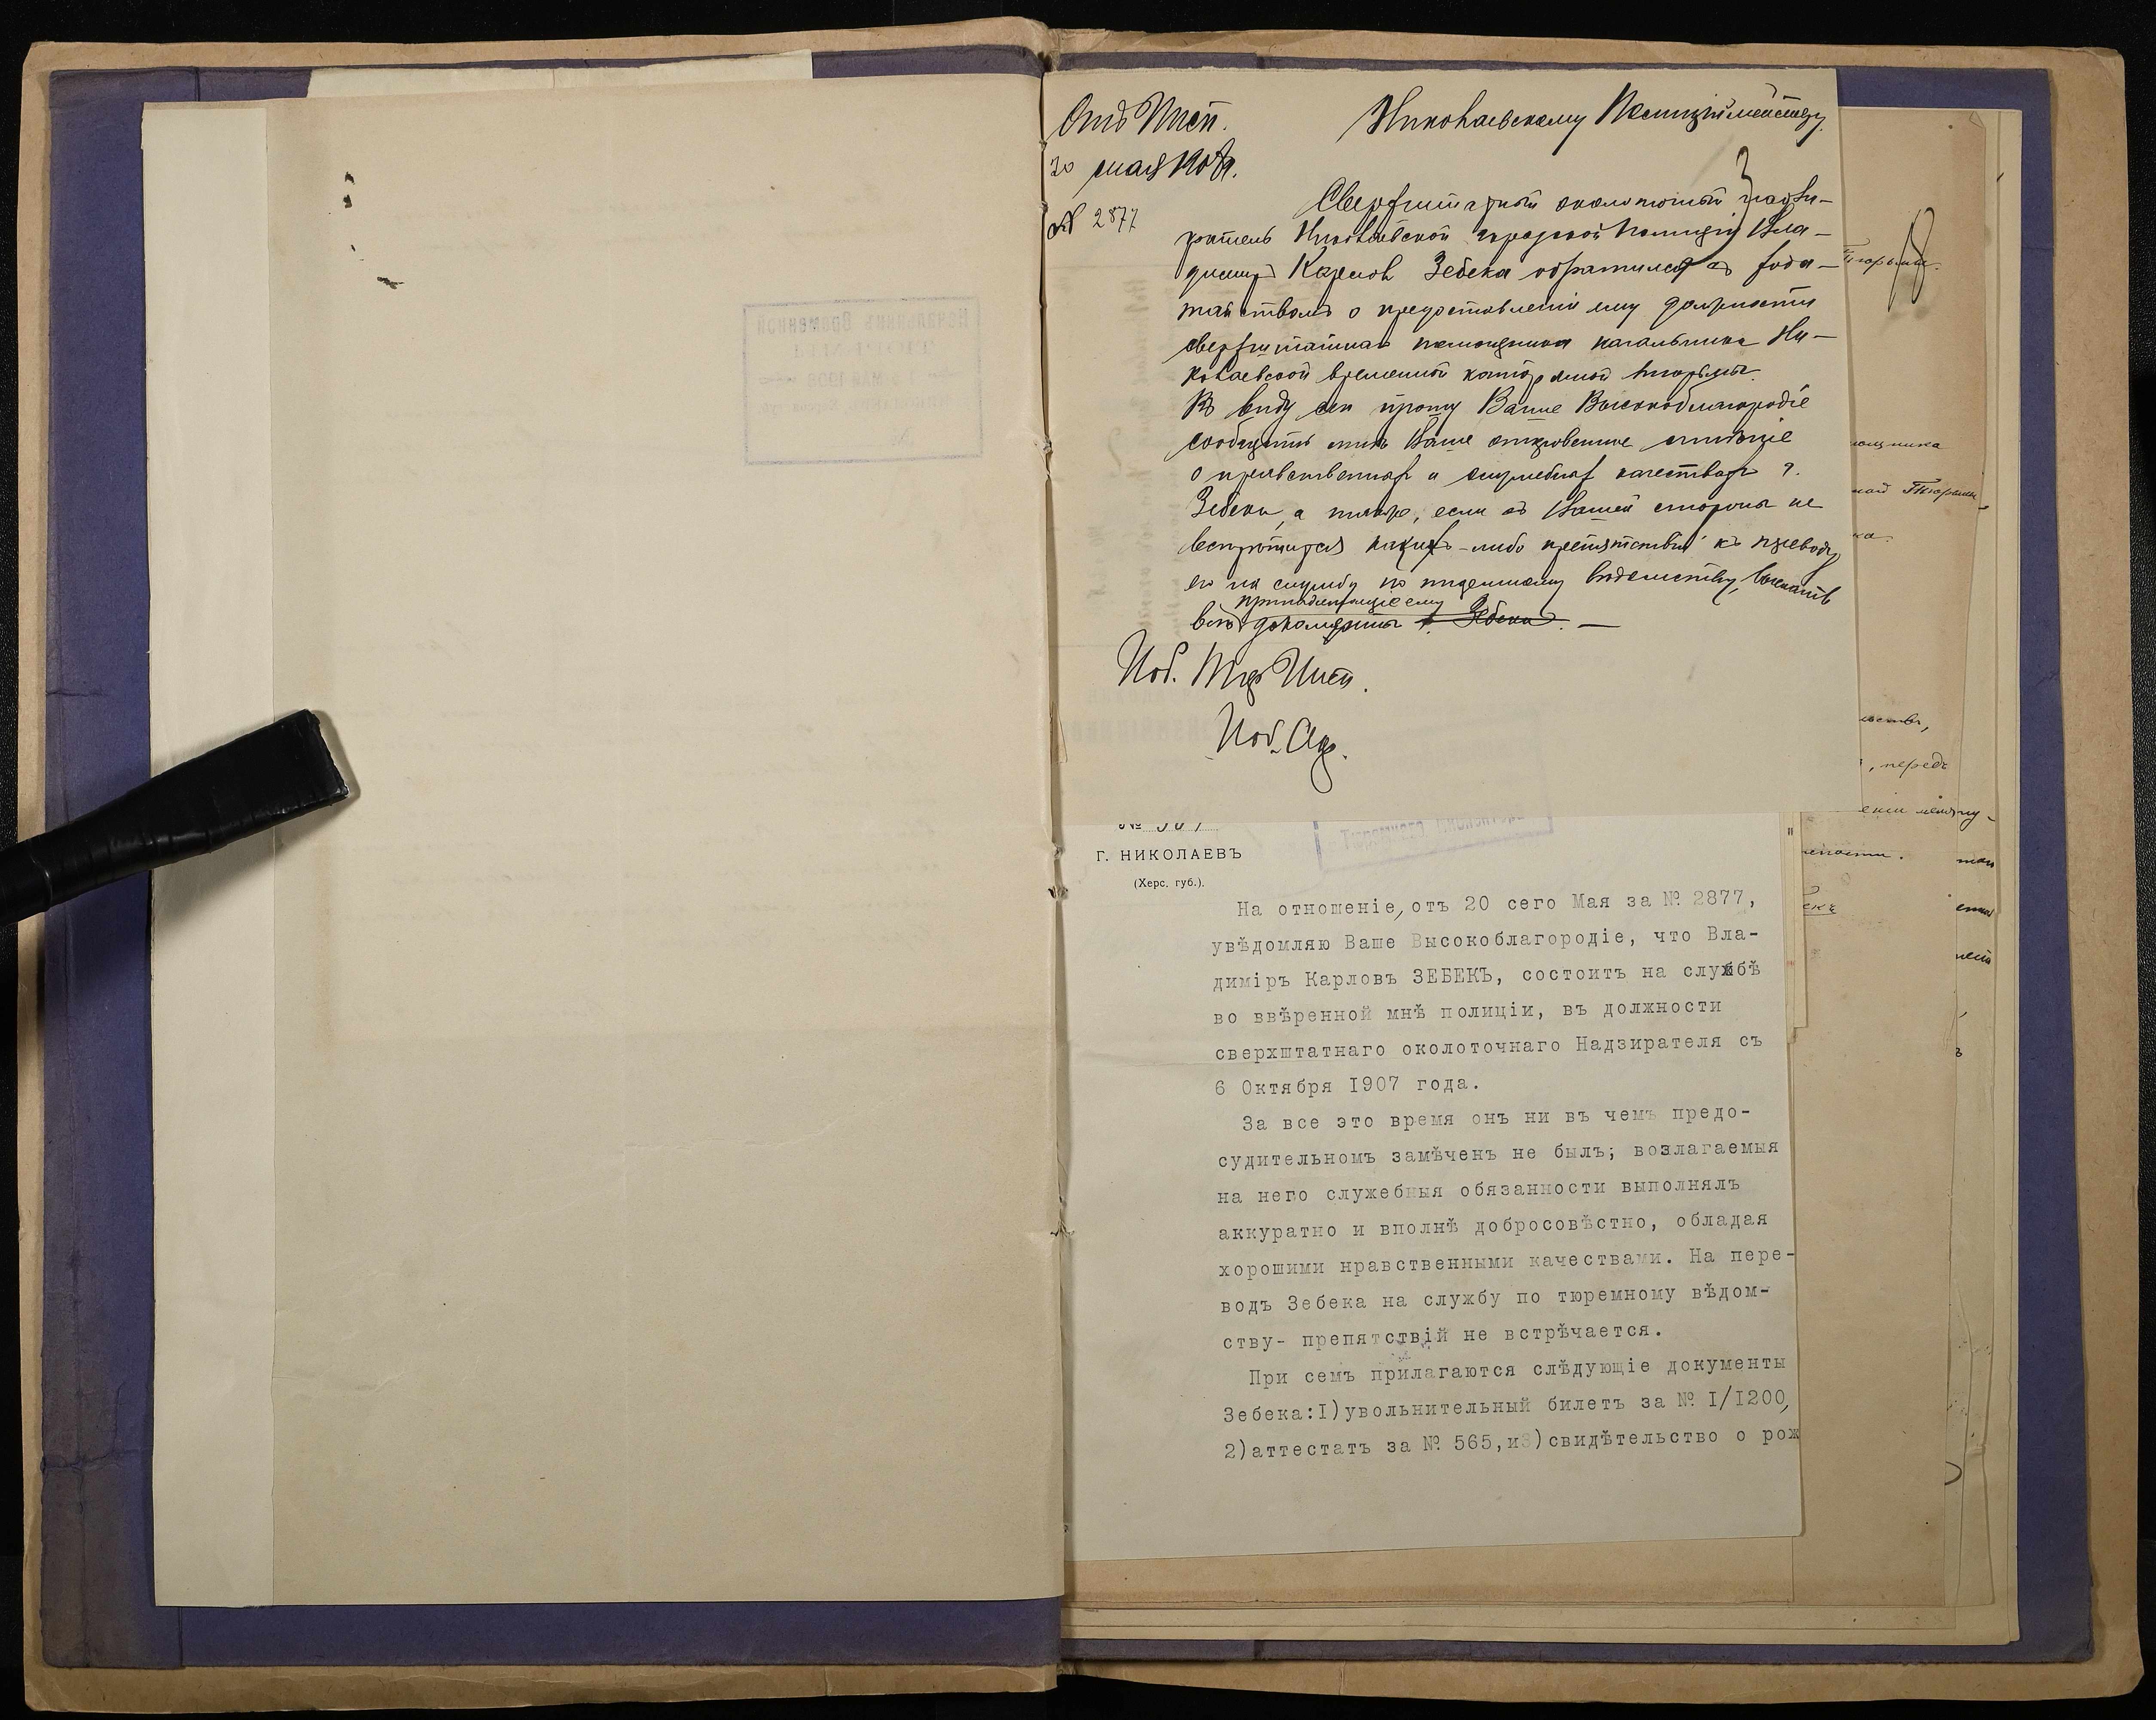 Николаевскому Полицiймейстеру
20 мая 1908 г.
№ 2877
Сверхштатный околоточный Надзи-
ратель Николаевской городской Полицiи Вла-
димiръ Карловъ Зебекъ обратился съ хода-
тайствомъ о предоставленiи ему должности
сверхштатнаго помощника начальника Ни-
колаевской временной каторжной тюрьмы.
Въ виду сего прошу Ваше Высокоблагородiе
сообщить мнѣ Ваше откровенное мнѣнiе
о нравственныхъ и служебныхъ качествахъ г.
Зебека, а также, если съ Вашей стороны не
встрѣтится какихъ-либо препятствiй къ переводу
его на службу по тюремному вѣдомству, выслать
принадлежащiе ему
всѣ документы г. Зебека. —
Тюрьмы.
18
мощника
ной Тюрьмы
, передъ
№ 567
Г. НИКОЛАЕВЪ
(Херс. губ.).
Тюремнаго Инспектора
На отношенiе, отъ 20 сего Мая за № 2877,
увѣдомляю Ваше Высокоблагородiе, что Вла-
димiръ Карловъ ЗЕБЕКЪ, состоитъ на службѣ
во ввѣренной мнѣ полицiи, въ должности
сверхштатнаго околоточнаго Надзирателя съ
6 Октября I907 года.
За все это время онъ ни въ чемъ предо-
судительномъ замѣченъ не былъ; возлагаемыя
на него служебныя обязанности выполнялъ
аккуратно и вполнѣ добросовѣстно, обладая
хорошими нравственными качествами. На пере-
водъ Зебека на службу по тюремному вѣдом-
ству- препятствiй не встрѣчается.
При семъ прилагаются слѣдующiе документы
Зебека:I)увольнительный билетъ за № I/I200,
2)аттестатъ за № 565,и3)свидѣтельство о рож